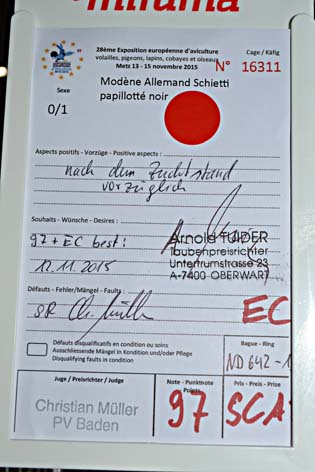 mifuma
28ème Exposition européenne d'aviculture
volailles, pigeons, lapins, cobayes et oiseaux
Metz 13 - 15 novembre 2015
Cage / Käfig
N° 16311
Modène Allemand Schietti
papillotté noir
Sexe
0/1
Aspects positifs - Vorzüge - Positive aspects :
nach dem Zuchtstand
vorzüglich
Souhaits - Wünsche - Desires :
97 + EC best:
12.11.2015
Arnold TUIDER
Taubenpreisrichter
Untertrumstrasse 23
A-7400 OBERWART
Défauts - Fehler/Mängel - Faults :
SR Ch. Müller
EC
Défauts disqualificatifs en condition ou soins
Ausschliessende Mängel in Kondition und/oder Pflege
Disqualifying faults in condition
Bague - Ring
ND 642 - 1
Juge / Preisrichter / Judge
Christian Müller
PV Baden
Note - Punktnote
Points
97
Prix - Preis - Prize
SCA